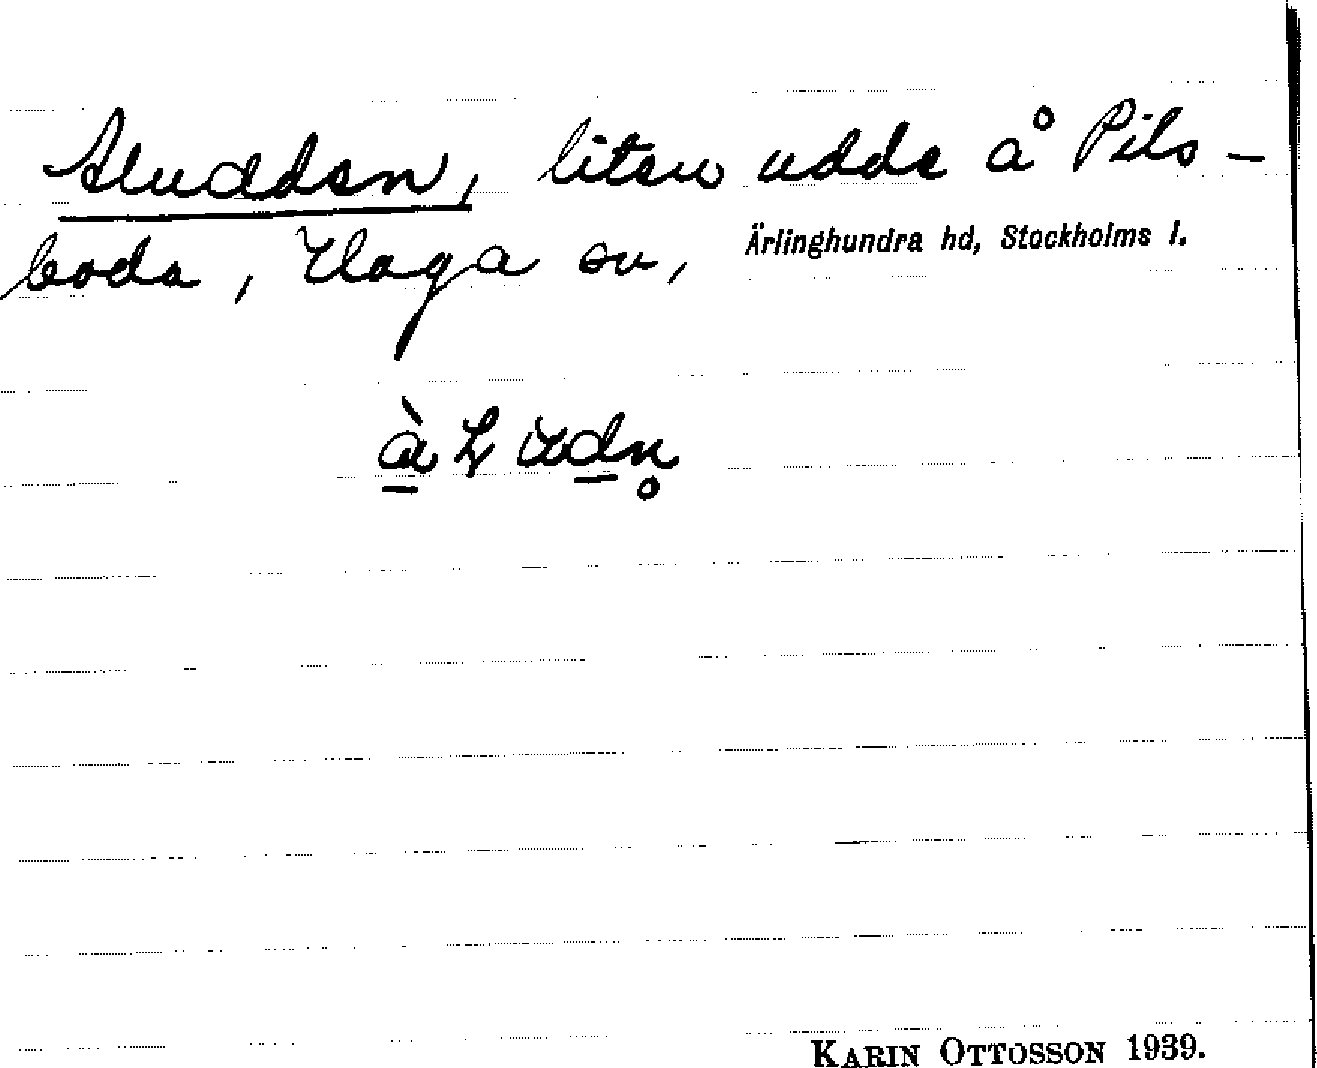 Aludden, liten udde å Pils-
boda, Haga sn,
Ärlinghundra hd, Stockholms l.
KARIN OTTOSSON 1939.